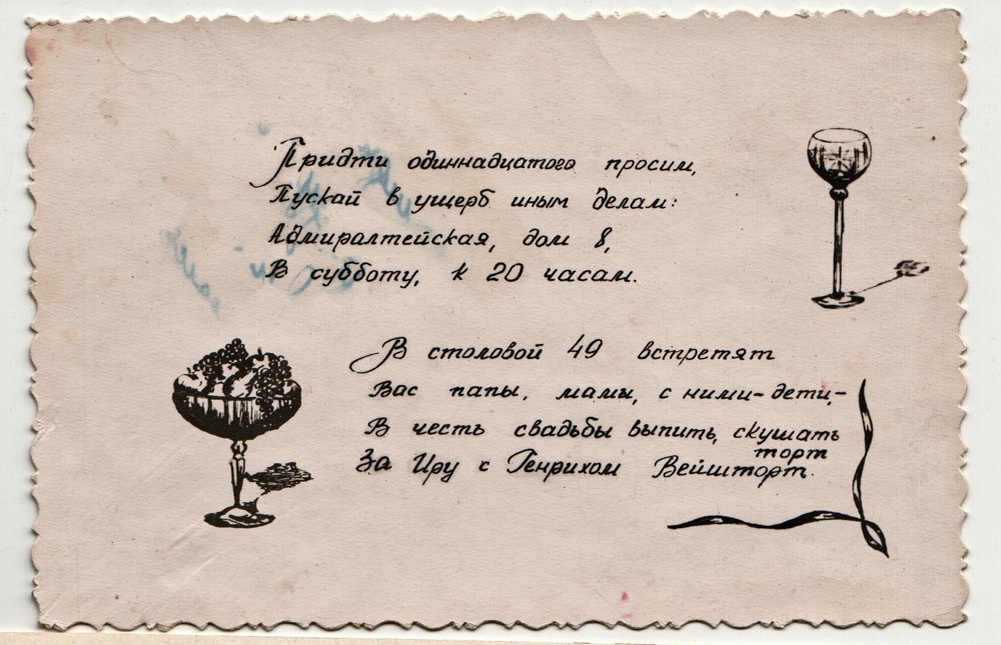 Придти одиннадцатого просим,
Пускай в ущерб иным делам:
Адмиралтейская, дом 8,
В субботу, к 20 часам.
В столовой 49 встретят
Вас папы, мамы, с ними-дети,-
В честь свадьбы выпить, скушать
торт
За Иру с Генрихом Вейшторт.